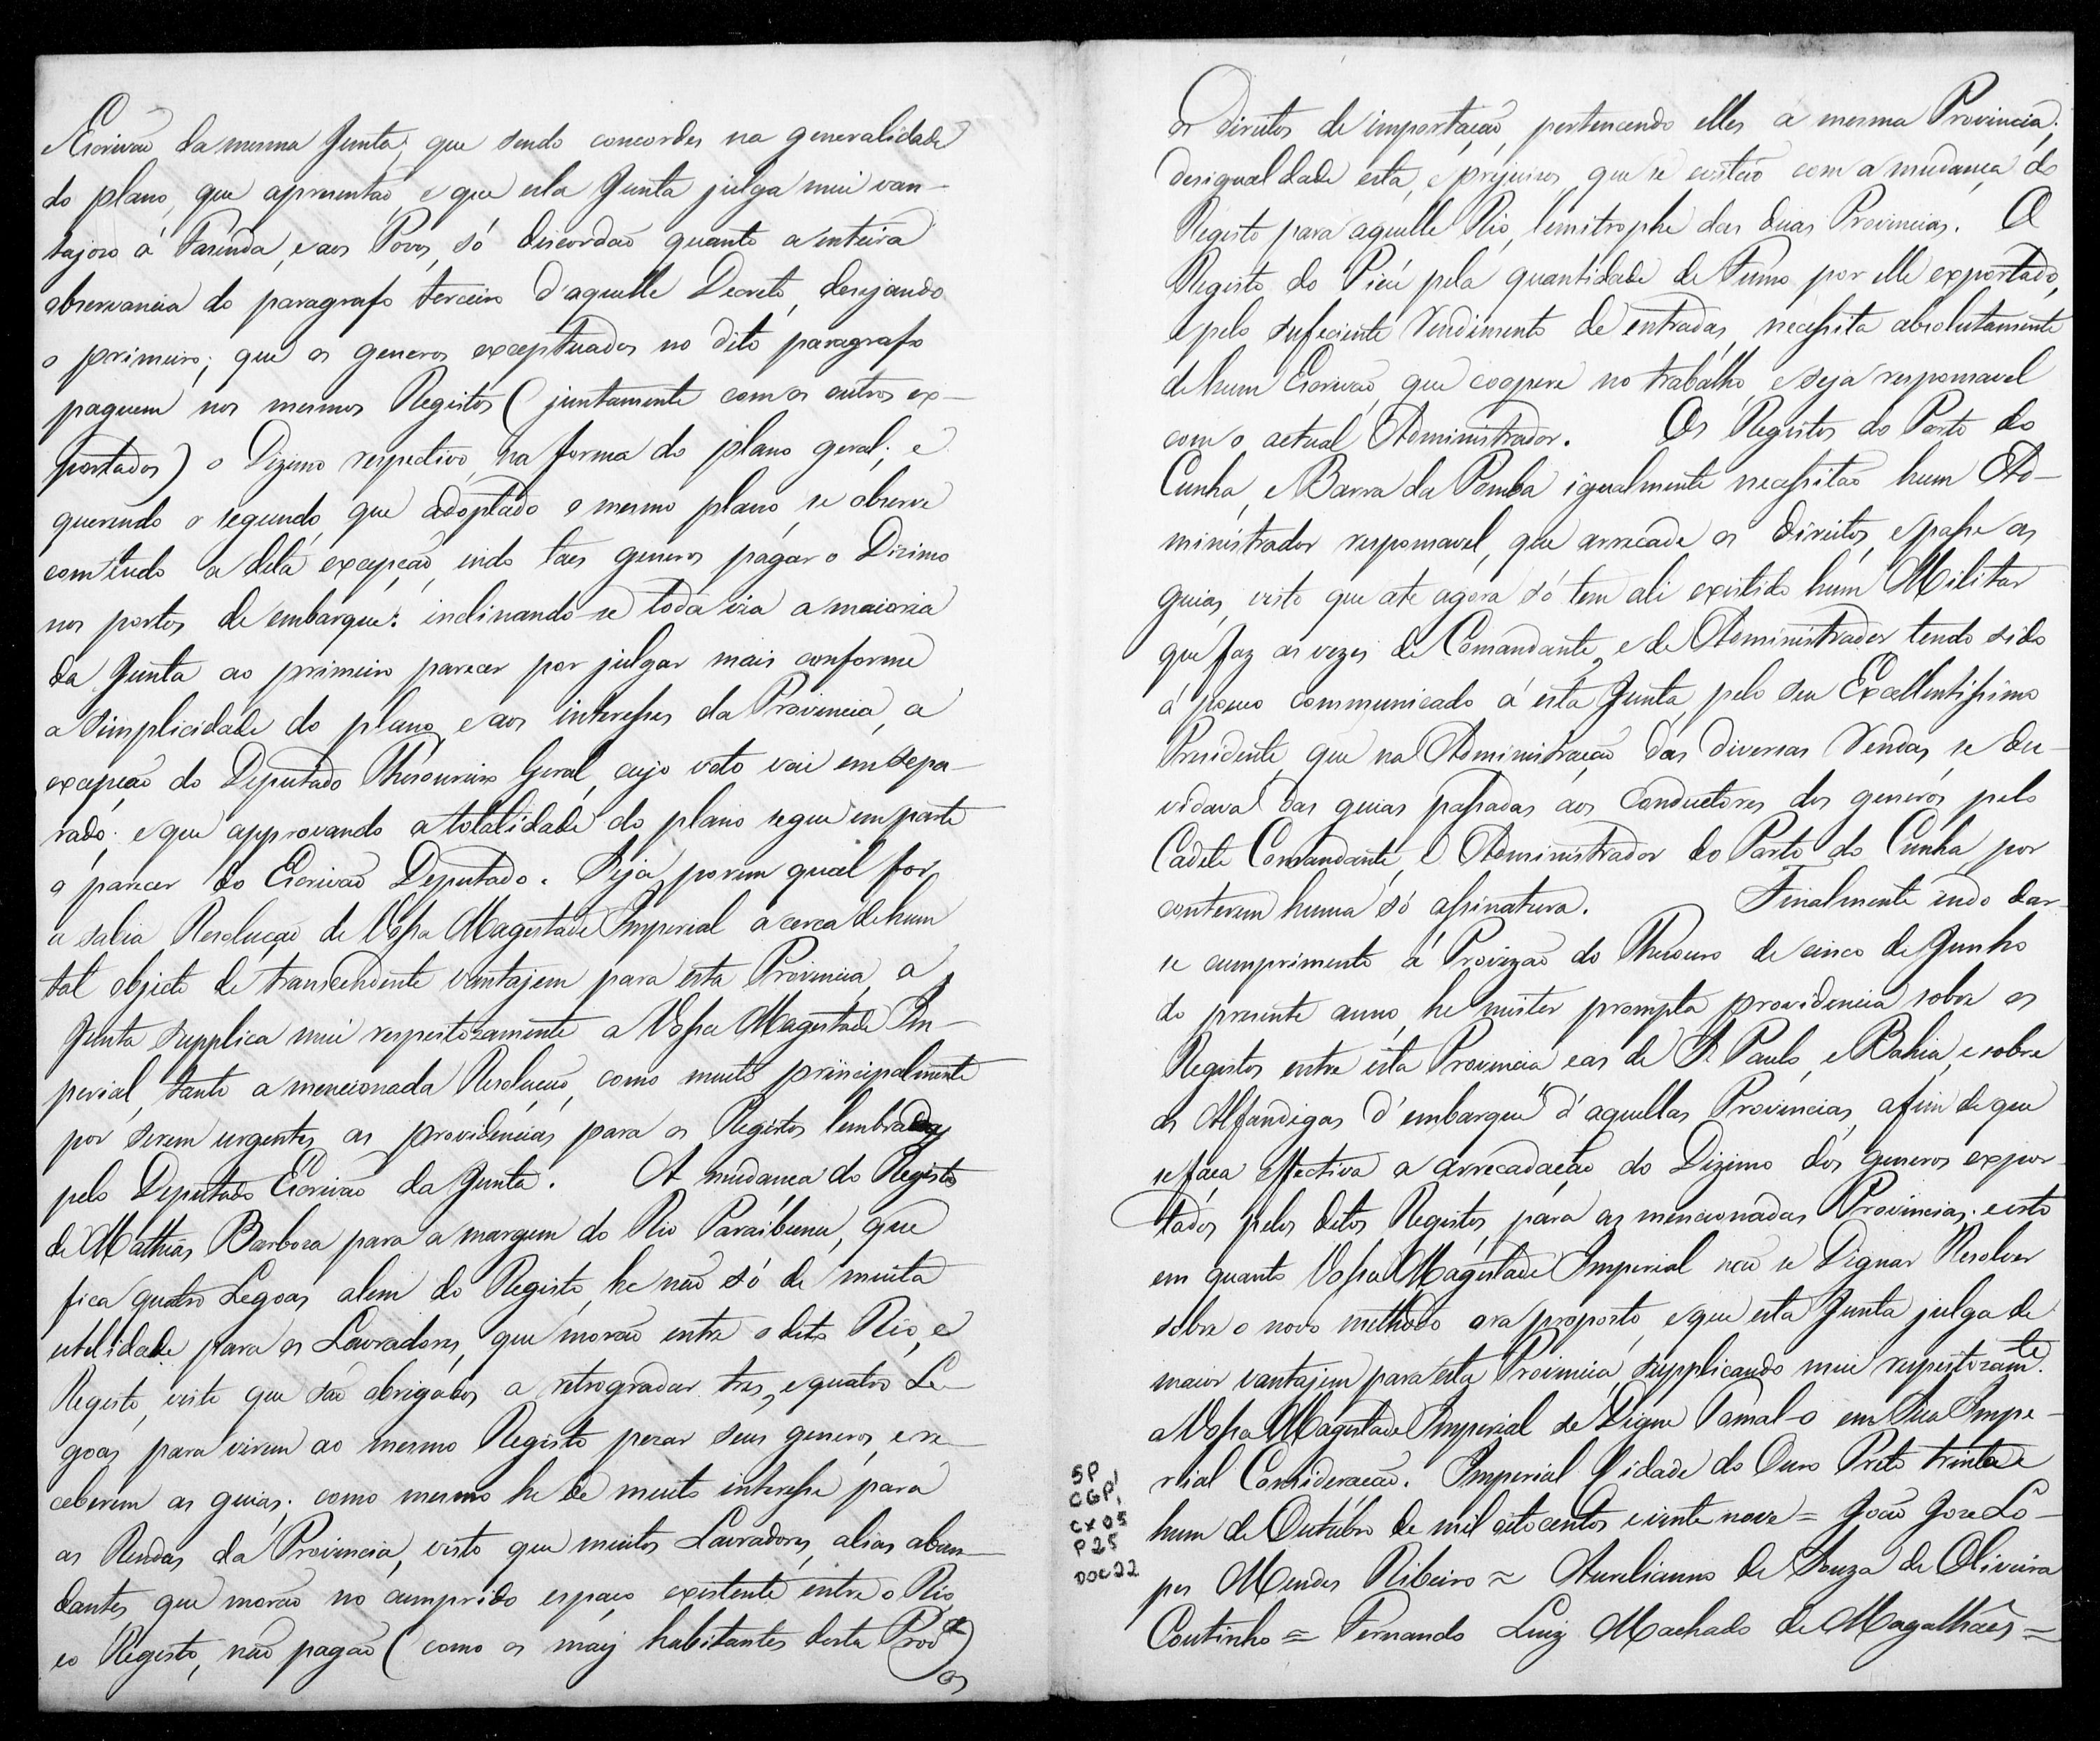 Escrivaõ da mesma Junta; que sendo concordes na generalidade
do plano, que apresentaõ, e que esta Junta julga mui van-
tajozo á Fazenda, e aos Povos, só discordaõ quanto a inteira
observancia do paragrafo terceiro d'aquelle Decreto, desejando
o primeiro; que os generos exceptuados no dito paragrafo
paguem nos mesmos Registos (juntamente com os outros ex-
portados) o Dizimo respectivo na forma do plano geral; e
querendo o segundo, que adoptado o mesmo plano, se observe
comtudo a dita excepçaõ, indo taes generos pagar o Dizimo
nos portos de embarque: inclinando-se toda via a maioria
da Junta ao primeiro parecer por julgar mais conforme
a simplicidade do plano, e aos interesses da Provincia, a
excepçaõ do Deputado Thesoureiro Geral, cujo voto vai em sepa-
rado; e que approvando a totalidade do plano segue em parte
o parecer do Escrivaõ Deputado. Seja porem qual for
a sabia Resoluçaõ de Vossa Magestade Imperial á cerca de hum
tal objecto de transcendente vantajem para esta Provincia, a
Junta supplica mui respeitozamente a Vossa Magestade Im-
perial, tanto a mencionada Resoluçaõ, como muito principalmente
por serem urgentes, as providencias para os Registos lembradas
pelo Deputado Escrivaõ da Junta. A mudança do Registo
de Mathias Barboza para a margem do Rio Paraibuna, que
fica quatro Legoas alem do Registo, he naõ só de muita
utilidade para os Lavradores, que moraõ entre o dito Rio, e
Registo, visto que saõ obrigados a retrogradar tres, e quatro Le-
goas para virem ao mesmo Registo pezar seus generos, e re-
ceberem as guias; como mesmo he de muito interesse para
as Rendas da Provincia, visto que muitos Lavradores, alias abun-
dantes, que moraõ no cumprido espaço existente entre o Rio,
e o Registo, naõ pagaõ (como os mais habitantes desta Prov.ᶜⁱᵃ)
os
os direitos de importaçaõ, pertencendo elles a mesma Provincia;
desigualdade esta, e prejuizos, que se evitaõ com a mudança do
Registo para aquelle Rio, limitrophe das duas Provincias. O
Registo do Picú pela quantidade de Fumo por elle exportado,
e pelo suficiente rendimento de entradas, necessita absolutamente
de hum Escrivaõ, que coopere no trabalho, e seja responsavel
com o actual Administrador. Os Registos do Porto do
Cunha, e Barra da Pomba igualmente necessitaõ hum Ad-
ministrador responsavel, que arrecade os direitos, e passe as
guias, visto que ate agora só tem ali existido hum Militar
que faz as vezes de Comandante, e de Administrador tendo sido
á pouco communicado á esta Junta pelo seu Excellentissimo
Presidente, que na Administraçaõ das diversas Rendas, se du-
vidava das guias passadas aos Conductores dos generos pelo
Cadete Comandante, e Administrador do Porto do Cunha, por
conterem huma só assinatura. Finalmente indo dar-
se cumprimento á Provizaõ do Thesouro de cinco de Junho
do presente anno, he mister prompta providencia sobre os
Registos entre esta Provincia e as de S. Paulo, e Bahia, e sobre
as Alfandigas d'embarque d'aquellas Provincias, afim de que
se faça effectiva a arrecadaçaõ do Dizimo dos generos expor-
tados pelos ditos Registos, para as mencionadas Provincias; e isto
em quanto Vossa Magestade Imperial naõ se Dignar Resolver
sobre o novo methodo ora proposto, e que esta Junta julga de
maior vantajem para esta Provincia, supplicando mui respeitozamᵗᵉ
a Vossa Magestade Imperial se Digne Tomal-o em Sua Impe-
rial Consideraçaõ. Imperial Cidade do Ouro Preto trinta e
hum de Outubro de mil oitocentos e vinte nove = Joaõ Joze Lo-
pes Mendes Ribeiro = Aurelianno de Souza de Oliveira
Coutinho = Fernando Luiz Machado de Magalhães =
SP
CGP1
CX 05
P25
DOC 22